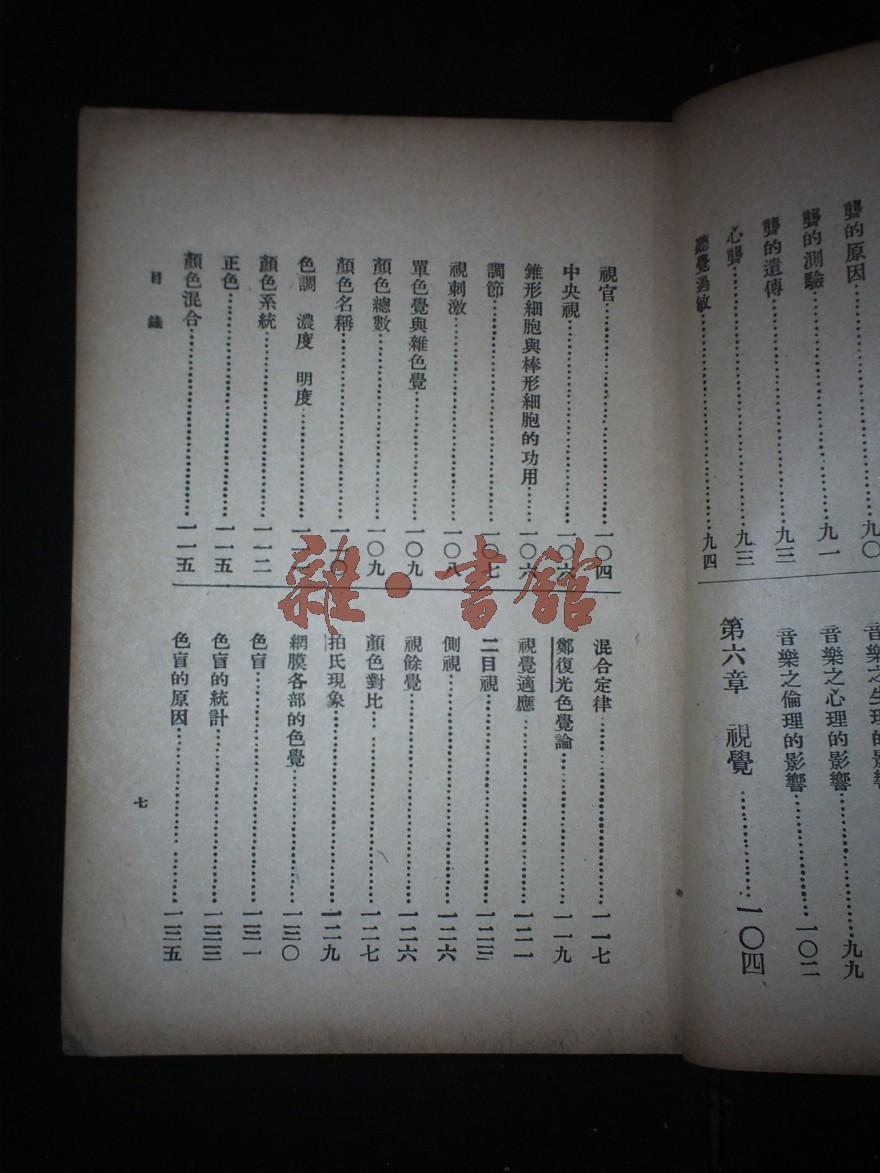 聾的原因……九〇
聾的測驗……九一
聾的遺傳……九三
心聾……九三
聽覺過敏……九四
音樂之生理的影響
音樂之心理的影響……九九
音樂之倫理的影響……一〇二
第六章 視覺……一〇四
視官……一〇四
中央視……一〇六
錐形細胞與棒形細胞的功用……一〇六
調節……一〇七
視刺激……一〇八
單色覺與雜色覺……一〇九
顏色總數……一〇九
顏色名稱……一一〇
色調 濃度 明度……
顏色系統……一一二
正色……一一五
顏色混合……一一五
混合定律……一一七
鄭復光色覺論……一一九
視覺適應……一二一
二目視……一二三
側視……一二六
視餘覺……一二六
顏色對比……一二七
拍氏現象……一二九
網膜各部的色覺……一三〇
色盲……一三一
色盲的統計……一三三
色盲的原因……一三五
目錄
七
雜·書館